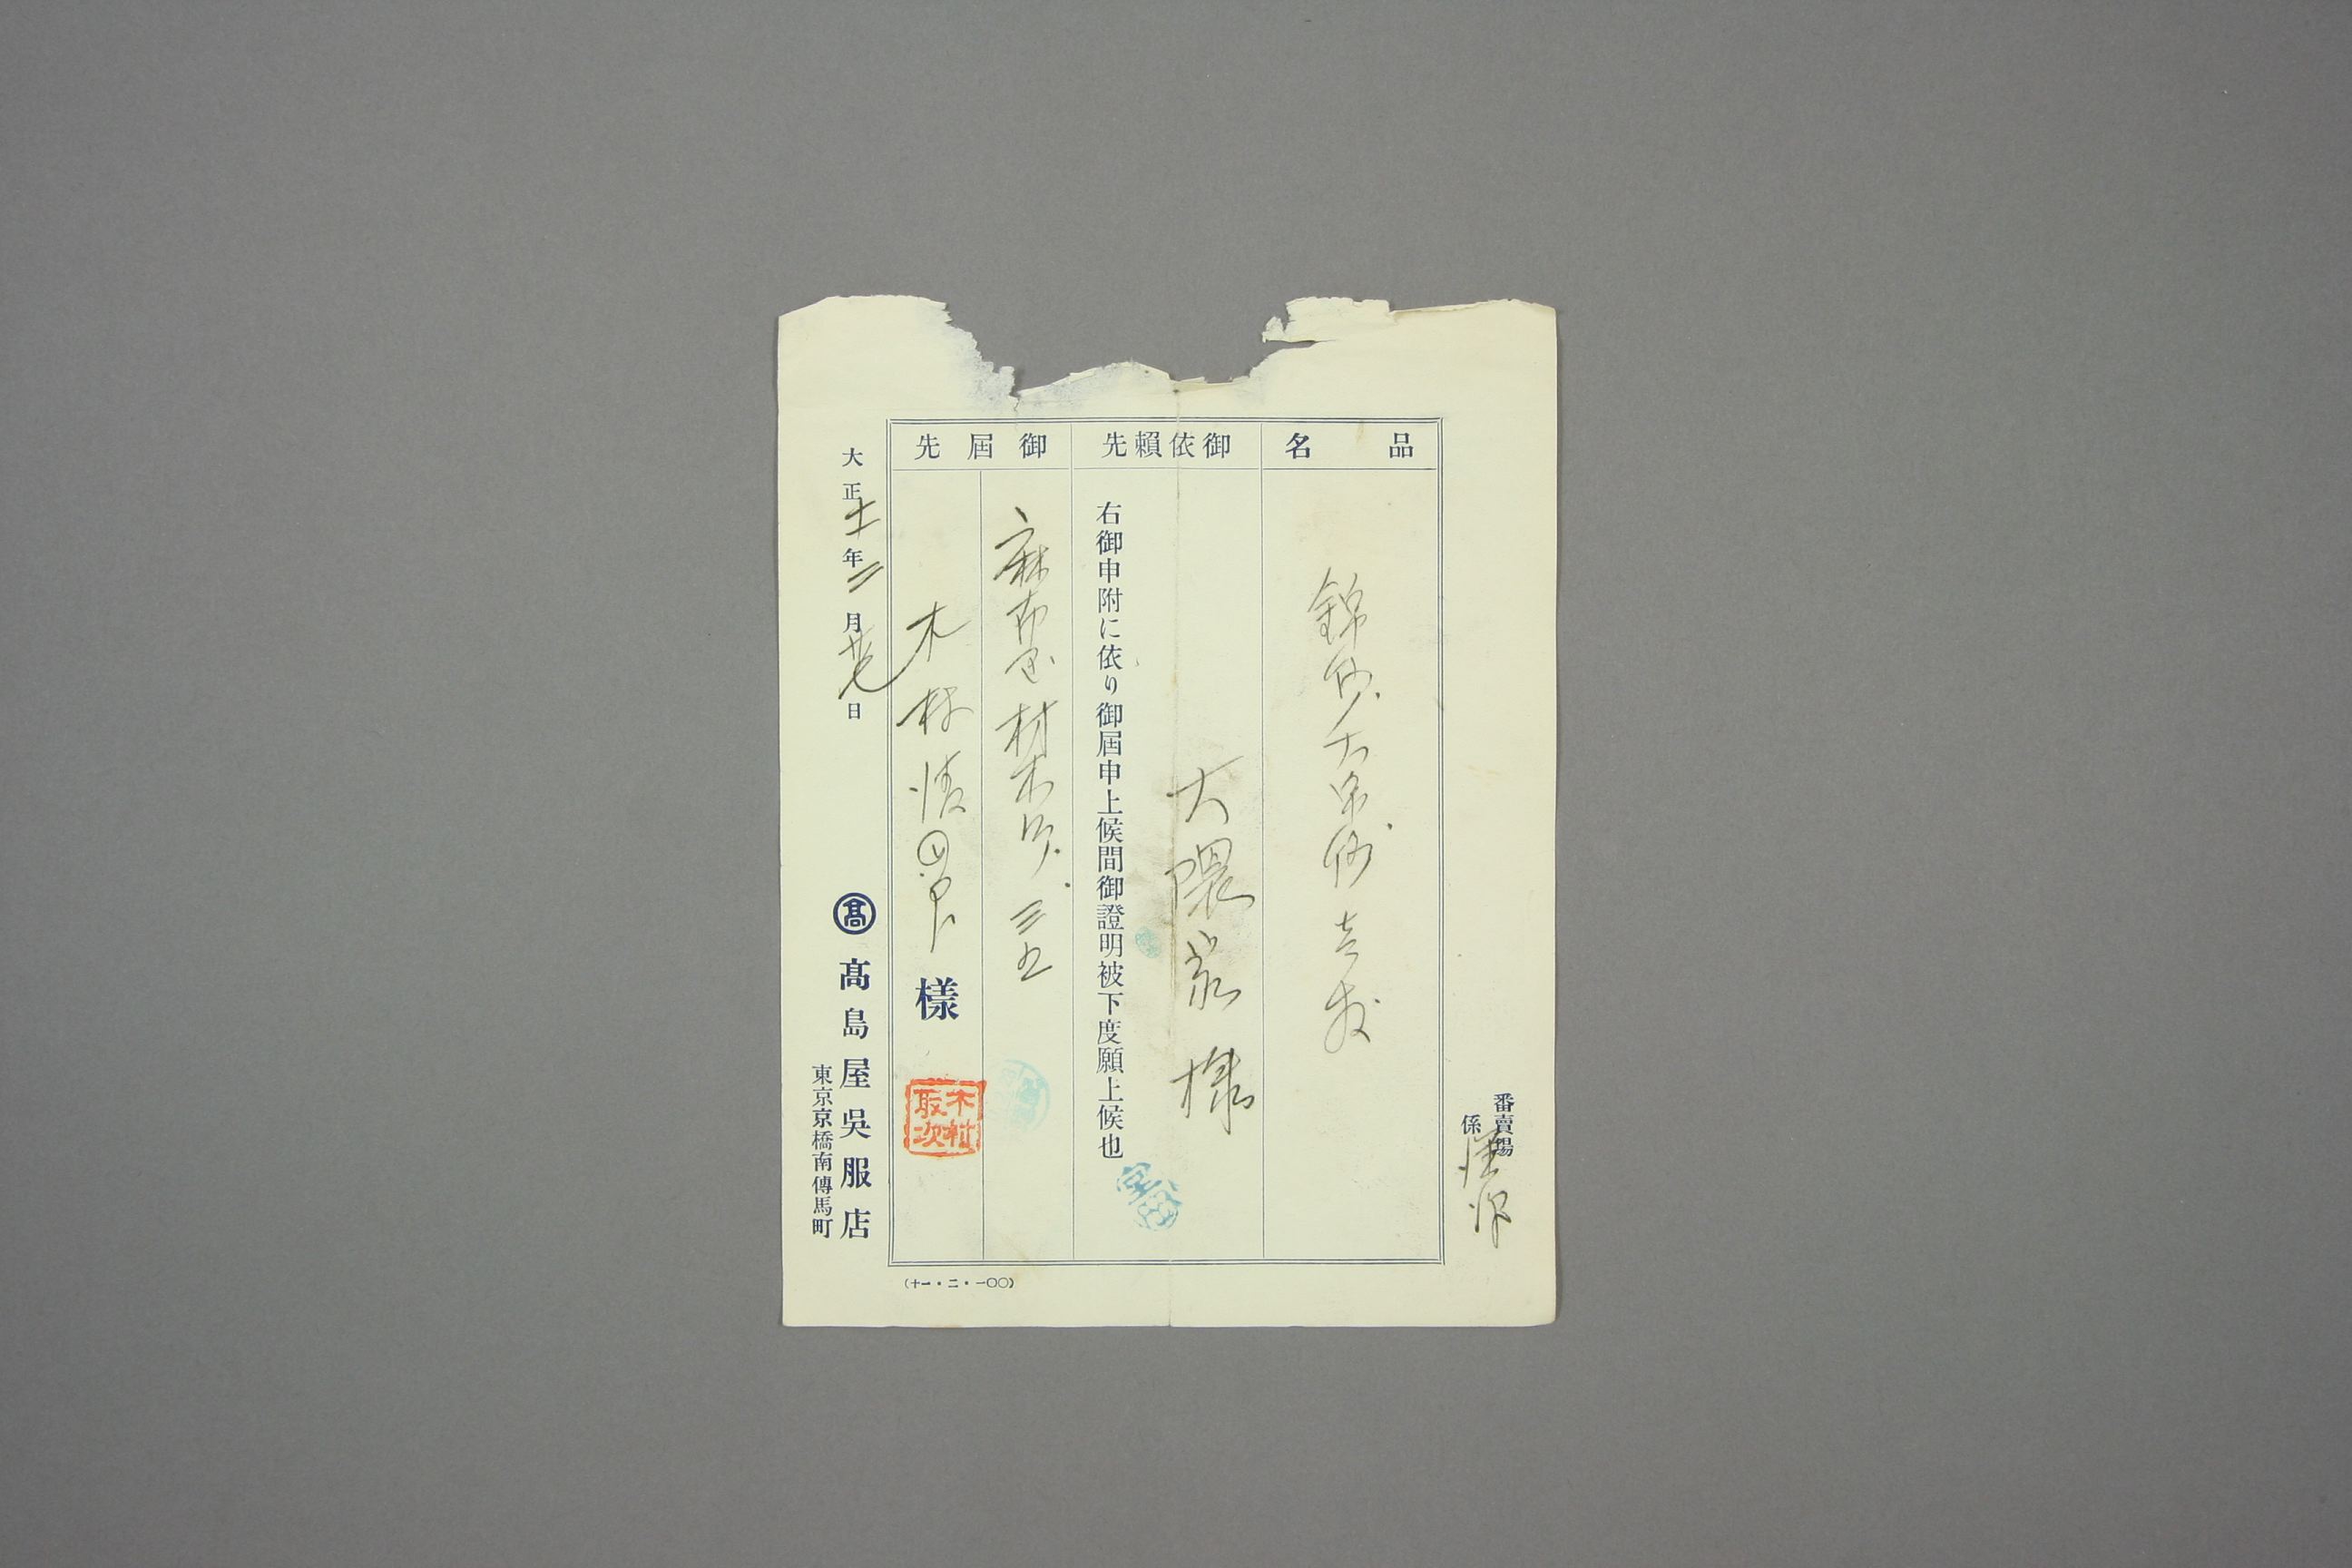 番賣場
係
品名
御依賴先
大隈家樣
右御申附に依り御屆申上候間御證明被下度願上候也
御屆先
麻布區材木町三五
木村清四郎樣
木村取次
大正十一年二月廿七日
髙
髙島屋吳服店
東京京橋南傳馬町
(十一・二・一〇〇)